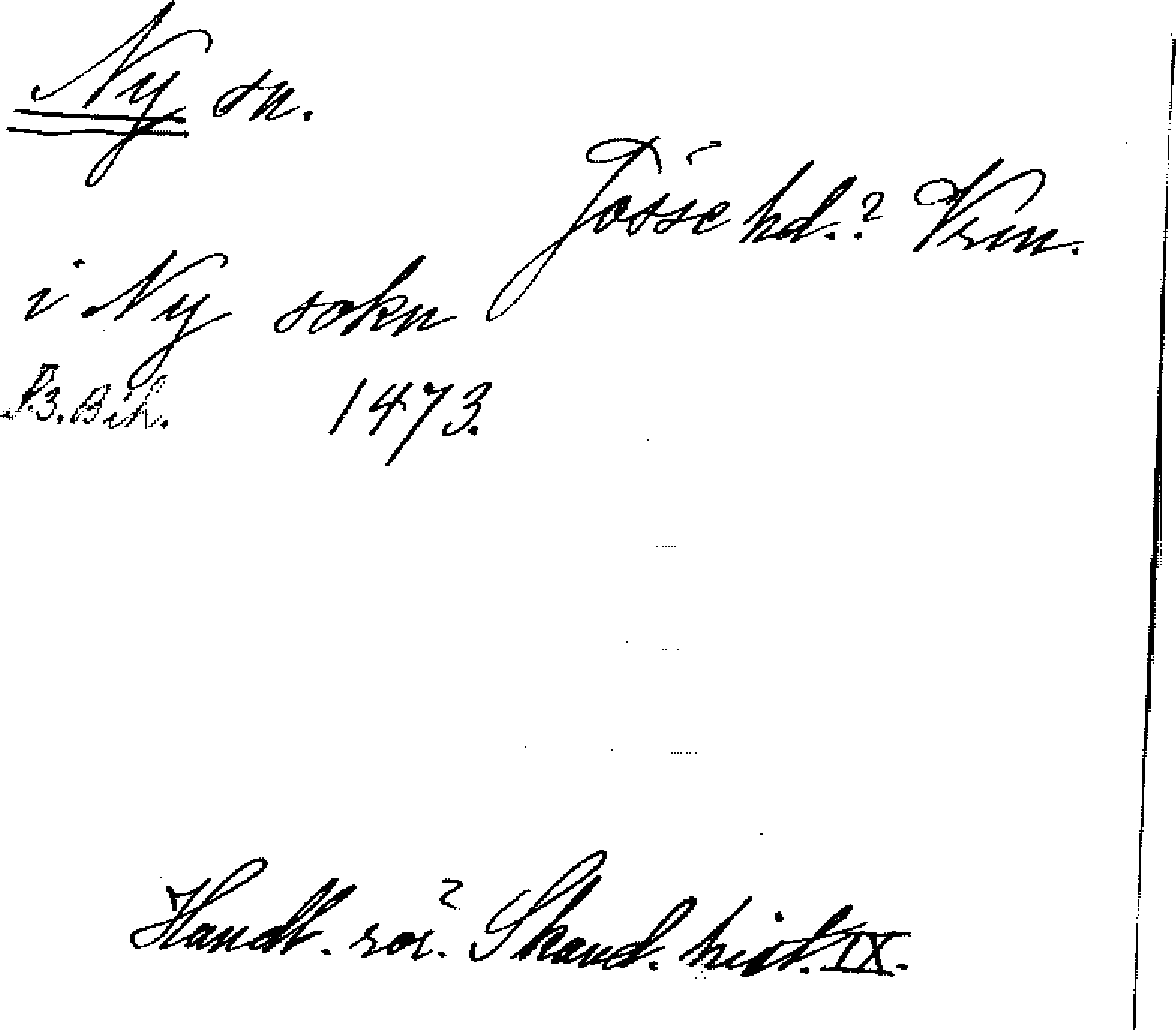 Ny sn.
Jösse hd.? Vrm.
i Ny sokn
1473.
Handl. rör. Skand. hist. IX.